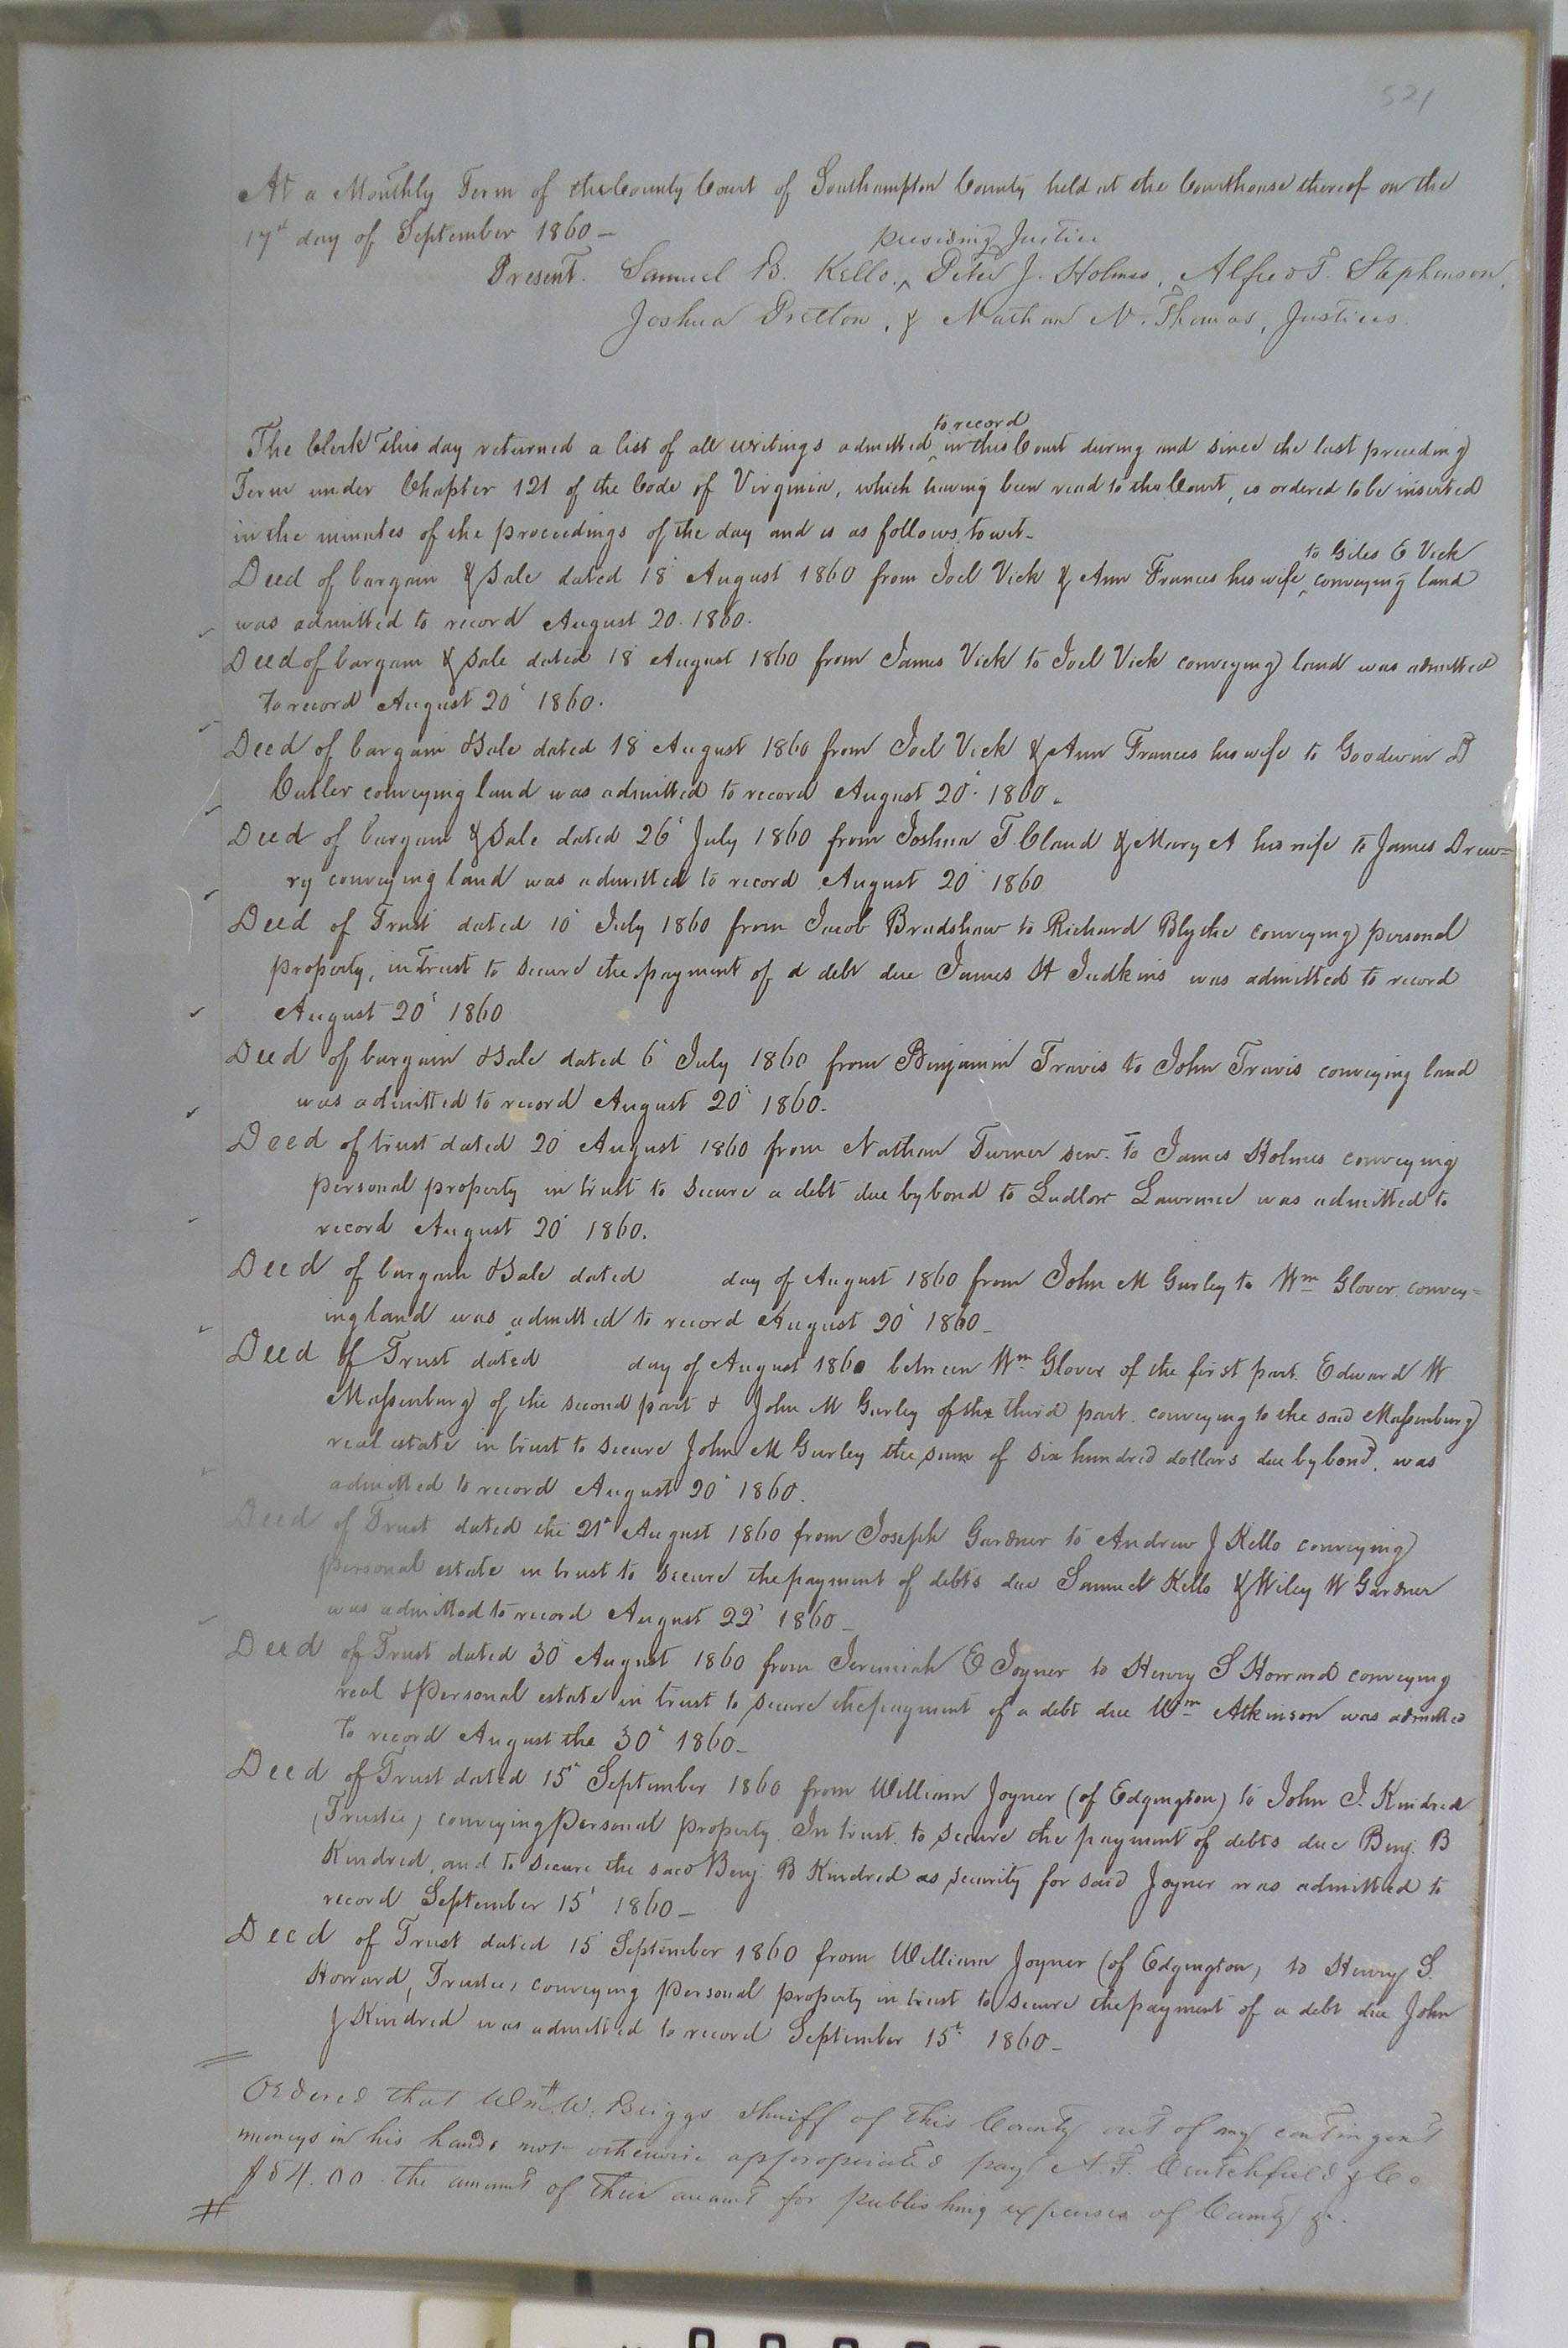 521
At a Monthly Term of the County Court of Southampton County held at the Courthouse thereof on the
17th day of September 1860 –
presiding Justice
Present. Samuel B. Kello, ^ Peter J. Holmes, Alfred T. Stephenson,
Joshua Pretlow, & Nathan N. Thomas, Justices.
to record
The Clerk this day returned a list of all writings admitted ^ in this Court during and since the last preceding
Term under Chapter 121 of the Code of Virginia, which having been read to the Court, is ordered to be inserted
in the minutes of the proceedings of the day and is as follows, to wit –
to Giles C Vick
Deed of bargain & Sale dated 18 August 1860 from Joel Vick & Ann Frances his wife ^ conveying land
was admitted to record August 20. 1860.
Deed of bargain & Sale dated 18 August 1860 from James Vick to Joel Vick conveying land was admitted
to record August 20 1860.
Deed of bargain & Sale dated 18 August 1860 from Joel Vick & Ann Frances his wife to Goodwin D
Cutler conveying land was admitted to record August 20. 1860.
Deed of bargain & Sale dated 26 July 1860 from Joshua T. Claud & Mary A his wife to James Drew=
ry conveying land was admitted to record August 20 1860
Deed of Trust dated 10 July 1860 from Jacob Bradshaw to Richard Blythe conveying personal
property, in trust to secure the payment of a debt due James H Judkins was admitted to record
August 20 1860
Deed of bargain & Sale dated 6 July 1860 from Benjamin Travis to John Travis conveying land
was admitted to record August 20 1860.
Deed of trust dated 20 August 1860 from Nathan Turner sen. to James Holmes conveying
personal property in trust to secure a debt due by bond to Ludlow Lawrence was admitted to
record August 20 1860.
Deed of bargain & Sale dated day of August 1860 from John M Gurley to Wm Glover, convey=
ing land was admitted to record August 20 1860 –
Deed of Trust dated day of August 1860 between Wm Glover of the first part. Edward W
Massenburg of the second part & John M Gurley of the third part. conveying to the said Massenburg
real estate in trust to secure John M Gurley the sum of six hundred dollars due by bond, was
admitted to record August 20 1860.
Deed of Trust dated the 21st August 1860 from Joseph Gardner to Andrew J Kello conveying
personal estate in trust to secure the payment of debts due Samuel Kello & Wiley W Gardner
was admitted to record August 22 1860 –
Deed of Trust dated 30 August 1860 from Jeremiah E Joyner to Henry S Howard conveying
real & Personal estate in trust to secure the payment of a debt due Wm Atkinson was admitted
to record August the 30 1860 –
Deed of Trust dated 15 September 1860 from William Joyner (of Edgington) to John J. Kindred
(Trustee) conveying Personal property. In trust to secure the payment of debts due Benj. B
Kindred, and to secure the said Benj. B Kindred as security for said Joyner was admitted to
record September 15 1860 –
Deed of Trust dated 15 September 1860 from William Joyner (of Edgington, to Henry S.
Howard, Trustee, conveying personal property in trust to secure the payment of a debt due John
J Kindred was admitted to record September 15t. 1860 –
Ordered that Wm. W. Briggs Sheriff of this County out of any contingent
moneys in his hands not otherwise appropriated pay A. F. Crutchfield & Co
$54.00 the amount of their account for publishing expenses of County &c.